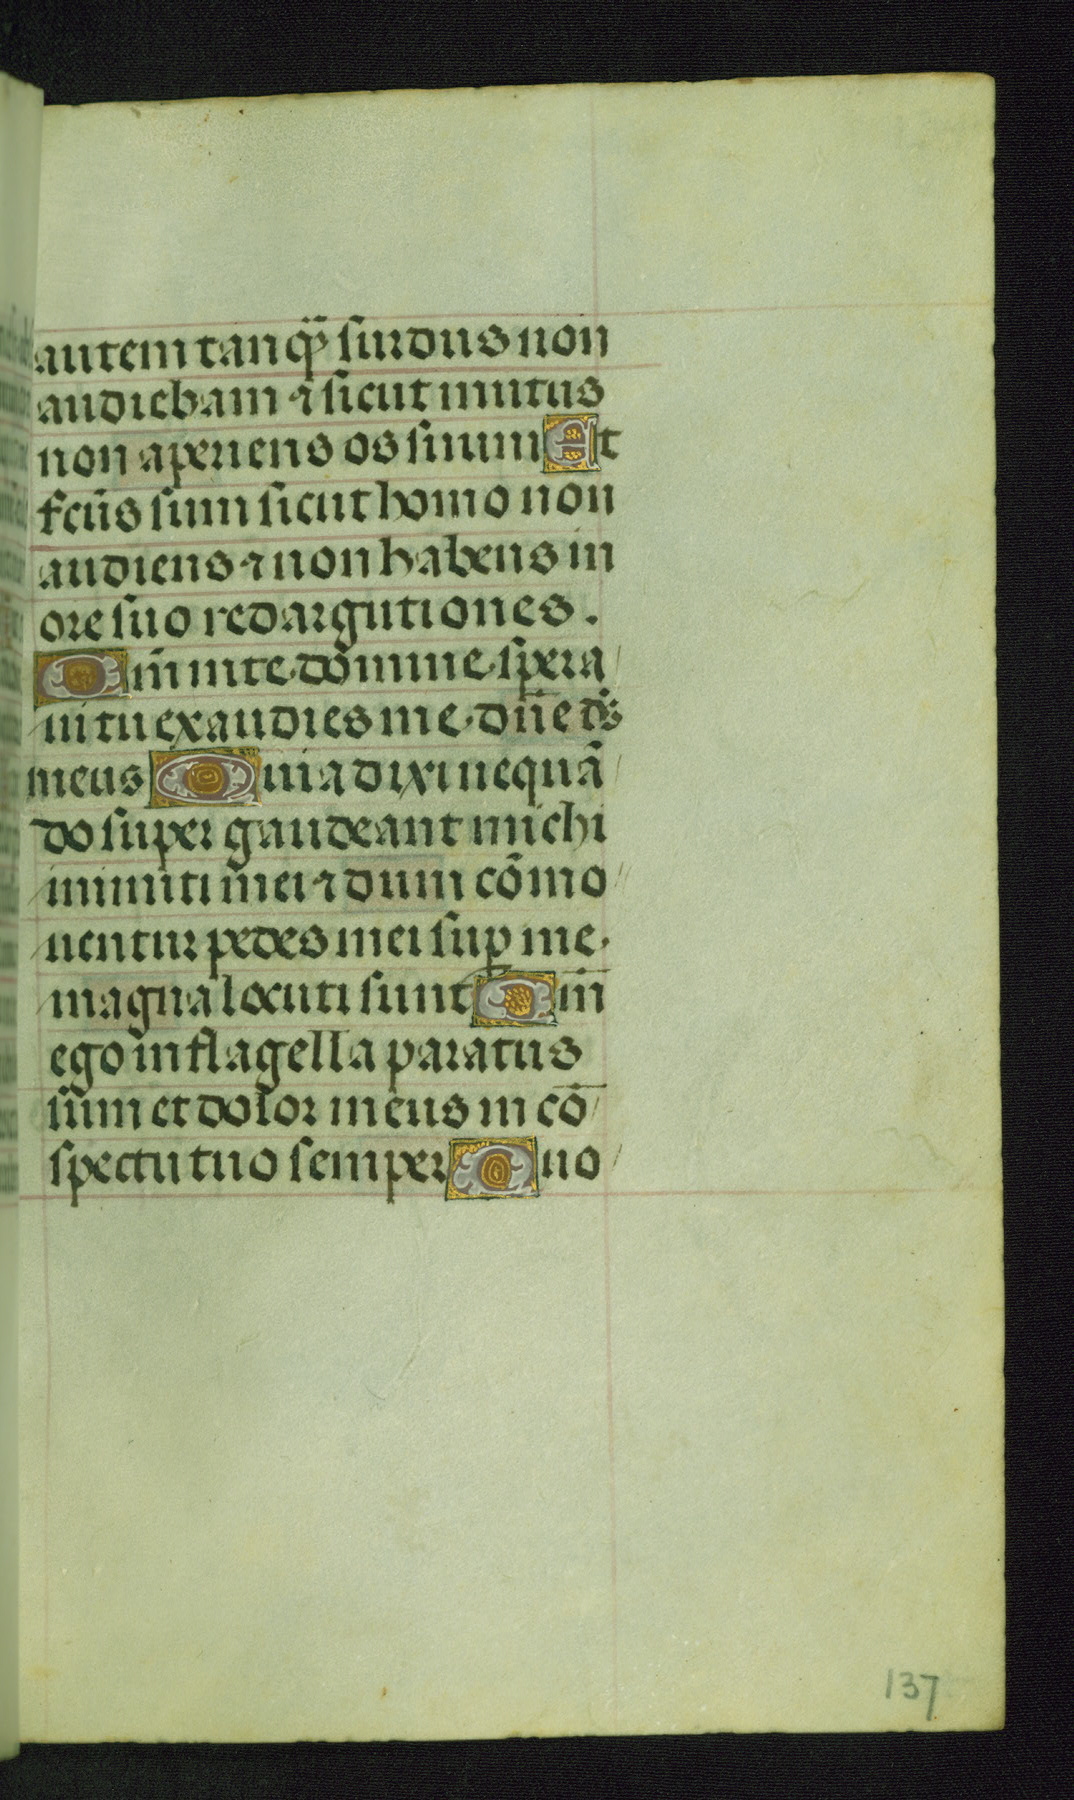 autem tanq̃ surdus non
audiebam ⁊ sicut mutus
non aperiens os suum Et
fcũs sum sicut homo non
audiens ⁊ non habens in
ore suo redargutiones.
Qm̃ in te domine spera
ui tu exaudies me. dñe dš
meus Quia dixi nequã
do super gaudeant michi
inimiti mei ⁊ dum cõmo
uentur pedes mei sup me.
magna locuti sunt Qm̃
ego in flagella paratus
sum et dolor meus in cõ
spectu tuo semper Quo
137